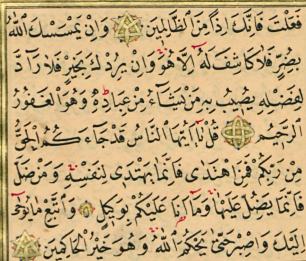 فَعَلْتَ فَاِنَّكَ اِذًا مِنَ الظَّالِمِينَ وَاِنْ يَمْسَسْكَ اللّٰهُ
بِضُرٍّ فَلَا كَاشِفَ لَهُٓ اِلَّا هُوَ وَاِنْ يُرِدْكَ بِخَيْرٍ فَلَا رَٓادَّ
لِفَضْلِهِ يُصِيبُ بِهِ مَنْ يَشَٓاءُ مِنْ عِبَادِهِ وَهُوَ الْغَفُورُ
الرَّحِيمُ قُلْ يَٓا اَيُّهَا النَّاسُ قَدْ جَٓاءَكُمُ الْحَقُّ
مِنْ رَبِّكُمْ فَمَنِ اهْتَدٰى فَاِنَّمَا يَهْتَدِى لِنَفْسِهِ وَمَنْ ضَلَّ
فَاِنَّمَا يَضِلُّ عَلَيْهَا وَمَٓا اَنَا عَلَيْكُمْ بِوَكِيلٍ وَاتَّبِعْ مَا يُوحٰٓى
اِلَيْكَ وَاصْبِرْ حَتّٰى يَحْكُمَ اللّٰهُ وَهُوَ خَيْرُ الْحَاكِمِينَ